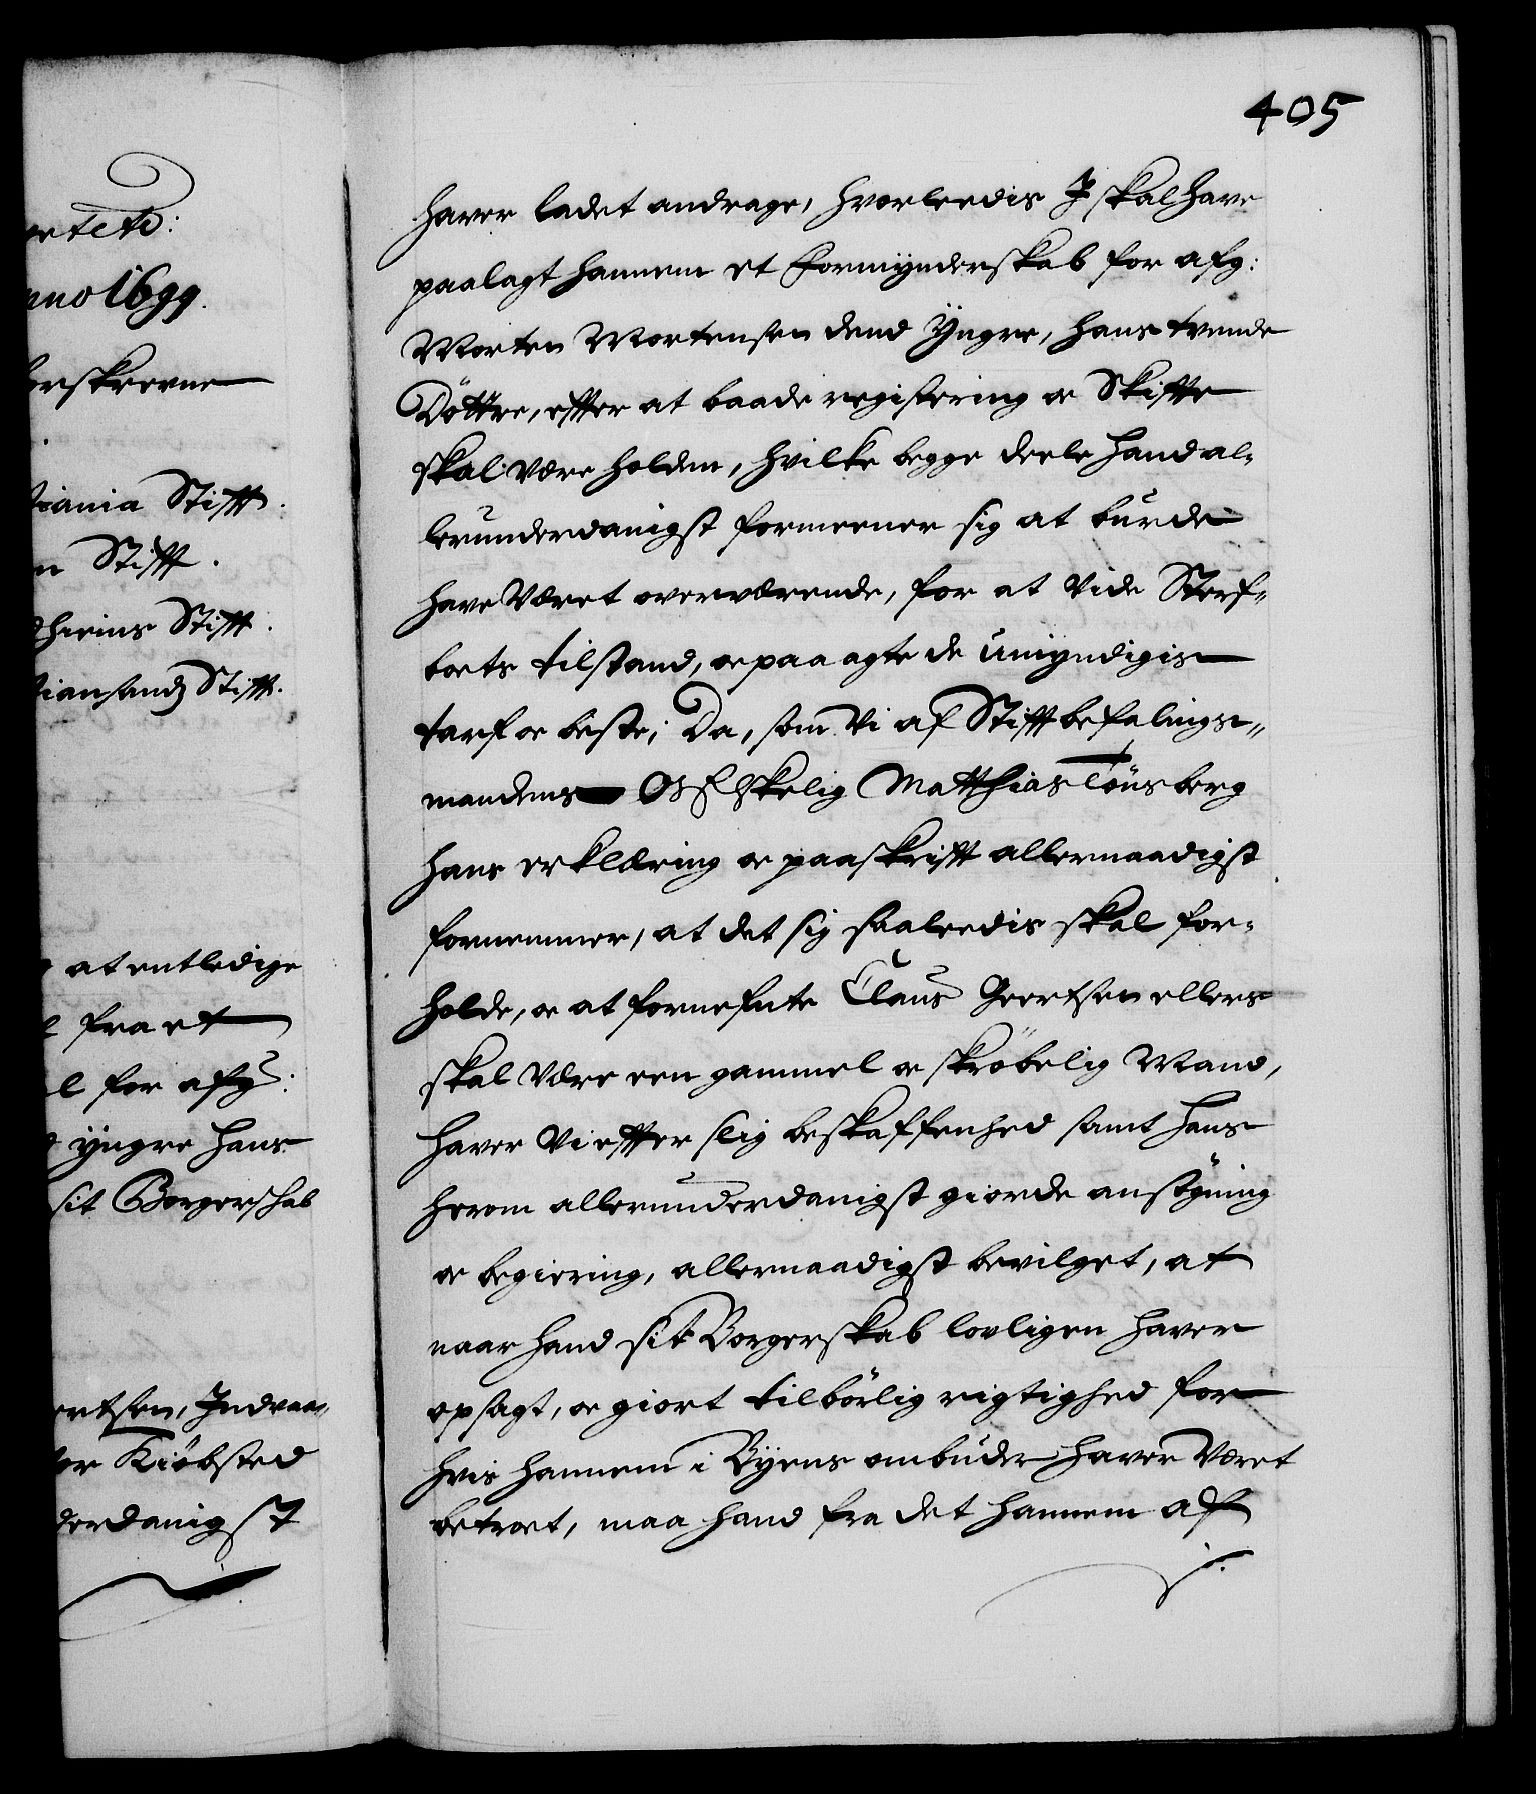 etctc:
nno 1699.
orskrevne
tiania Stifft.
n Stifft.
dhiems Stifft.
tiansandz Stifft.
at entledige
fra et
l for afg:
yngre hans
sit Borgerschab
ertsen, Indvaa-
or Kiöbsted
derdanigst
405
haver ladet andrage, hvorleedis I skal have
paalagt hannem et Formynderskab for afg:
Morten Mortensen dend Yngre, hans tvende
Döttre, effter at baade registering oc Skiffte
skal være holden, hvilke begge deele hand al-
lerunderdanigst formeener sig at burde
have været overværende, for at vide Sterf-
boets tilstand, oc paa agte de umyndigis
tarf oc beste; Da, som Vi af Stifftbefalings-
mandens Os Elskelig Matthias Tönsberg
hans erklæring oc paaskrifft allernaadigst
fornemmer, at det sig saaleedis skal for-
holde, oc at fornefnte Claus Geertsen ellers
skal være een gammel oc skröbelig Mand,
haver Vi effter slig beskaffenhed samt hans
herom allerunderdanigst giorde ansögning
oc begiering, allernaadigst bevilget, at
naar hand sit Borgerskab lovligen haver
opsagt, oc giort tilbörlig rigtighed for
hvis hannem i Byens ombuder haver været
betroet, maa hand fra det hannem af